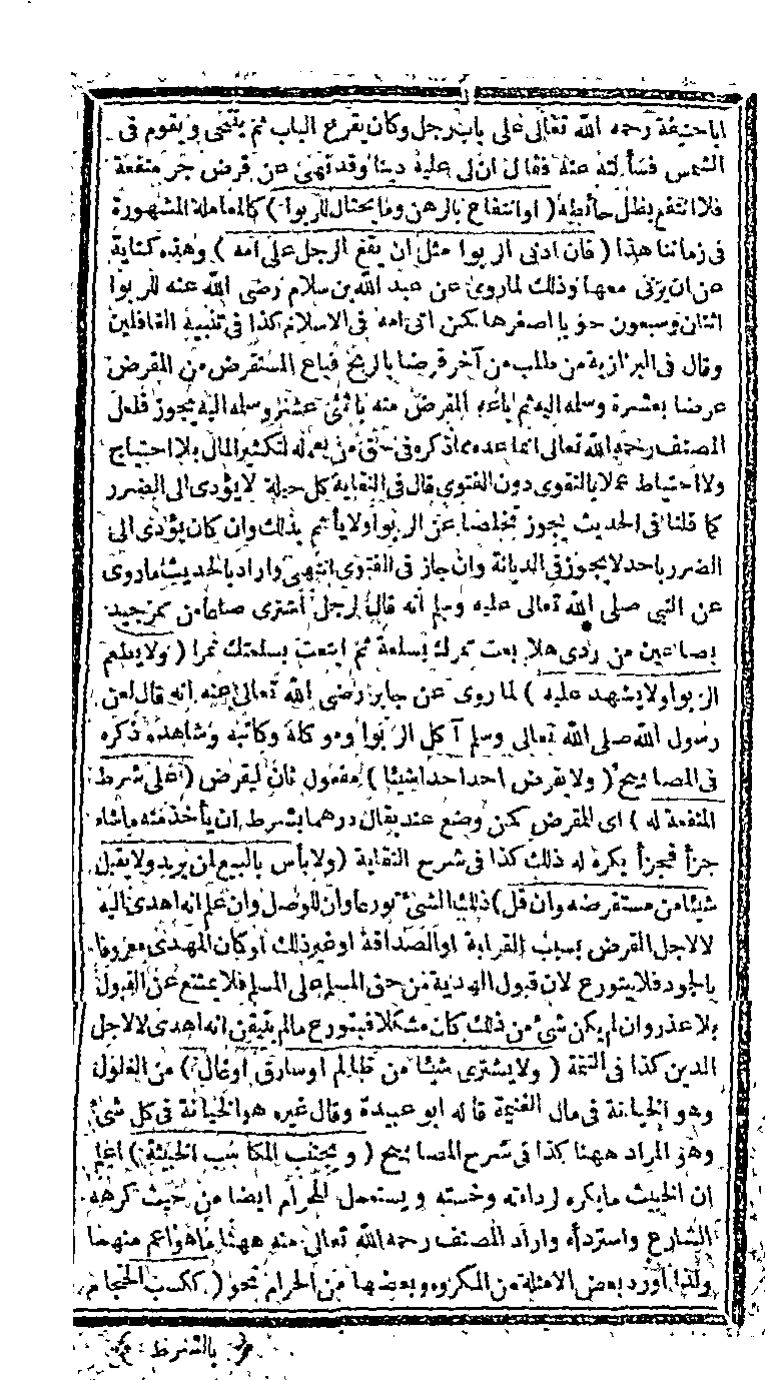 اباحنيفة رحمه الله تعالى على باب رجل وكان يقرع الباب ثم يتنحى ويقوم فى
الشمس فسألته عنه فقال ان لى عليه دينا وقد نهى عن قرض جر منفعة
فلا انتفع بظل حائطه (اوانتفاع بالرهن ومايحتال للربوا) كالمعاملة المشهورة
فى زماننا هذا (فان ادنى الربوا مثل ان يقع الرجل على امه) وهذه كناية
عن ان يزنى معها وذلك لماروى عن عبد الله بن سلام رضى الله عنه للربوا
اثنان وسبعون حوبا اصغرها كمن اتى امه فى الاسلام كذا فى تنبيه الغافلين
وقال فى البزازية من طلب من آخر قرضا بالربح فباع المستقرض من المقرض
عرضا بعشرة وسلمه اليه ثم باعه المقرض منه باثنى عشر وسلمه اليه يجوز فلعل
المصنف رحمه الله تعالى انما عده مما ذكره فى حق من يعمله لتكثير المال بلا احتياج
ولا احتياط عملا بالتقوى دون الفتوى قال فى النقاية كل حيلة لا يؤدى الى الضرر
كما قلنا فى الحديث يجوز تخلصا عن الربوا ولا يأثم بذلك وان كان يؤدى الى
الضرر باحد لا يجوز فى الديانة وان جاز فى الفتوى انتهى واراد بالحديث ماروى
عن النبى صلى الله تعالى عليه وسلم انه قال لرجل اشترى صاعا من تمر جيد
بصاعين من ردى هلا بعت تمرك بسلعة ثم ابتعت بسلعتك تمرا (ولا يطعم
الربوا ولا يشهد عليه) لما روى عن جابر رضى الله تعالى عنه انه قال لعن
رسول الله صلى الله تعالى وسلم آكل الربوا وموكله وكاتبه وشاهده ذكره
فى المصابيح (ولا يقرض احد احدا شيئا) مفعول ثان ليقرض (على شرط
المنفعة له) اى المقرض كمن وضع عند بقال درهما بشرط ان يأخذ منه ماشاء
جزأ فجزأ يكره له ذلك كذا فى شرح النقاية (ولا بأس بالبيع ان يريد ولا يقبل
شيئا من مستقرضه وان قل) ذلك الشئ تورعا وان للوصل وان علم انه اهدى اليه
لا لاجل القرض بسبب القرابة اوالصداقة اوغير ذلك اوكان المهدى معروفا
بالجود فلا يتورع لان قبول الهدية من حق المسلم على المسلم فلا يمتنع عن القبول
بلا عذر وان لم يكن شئ من ذلك كان مشكلا فيتورع مالم يتيقن انه اهدى لا لاجل
الدين كذا فى التتمة (ولا يشترى شيئا من ظالم اوسارق اوغال) من الغلول
وهو الخيانة فى مال الغنيمة قاله ابو عبيدة وقال غيره هو الخيانة فى كل شئ
وهو المراد ههنا كذا فى شرح المصابيح (ويجتنب المكاسب الخبيثة) اعلم
ان الخبيث مايكره لرداءته وخسته ويستعمل للحرام ايضا من حيث كرهه
الشارع واستردأه واراد المصنف رحمه الله تعالى منه ههنا ماهو اعم منهما
ولذا اورد بعض الامثلة من المكروه وبعضها من الحرام نحو (ككسب الحجام
بالشرط